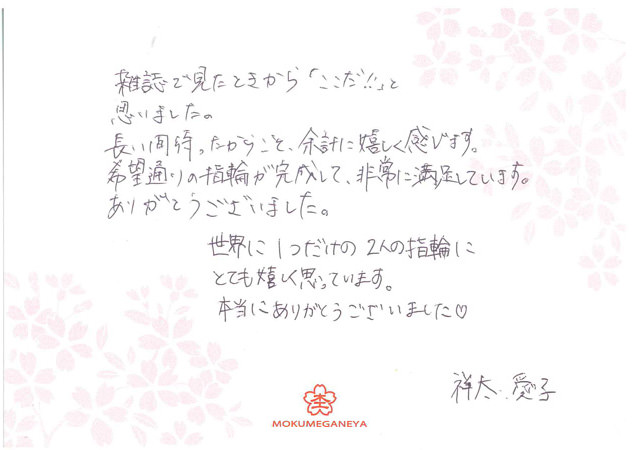 雑誌で見たときから「ここだ!!」と
思いました。
長い間待ったからこそ、余計に嬉しく感じます。
希望通りの指輪が完成して、非常に満足しています。
ありがとうございました。
世界に1つだけの2人の指輪に
とても嬉しく思っています。
本当にありがとうございました♡
祥太.愛子
MOKUMEGANEYA